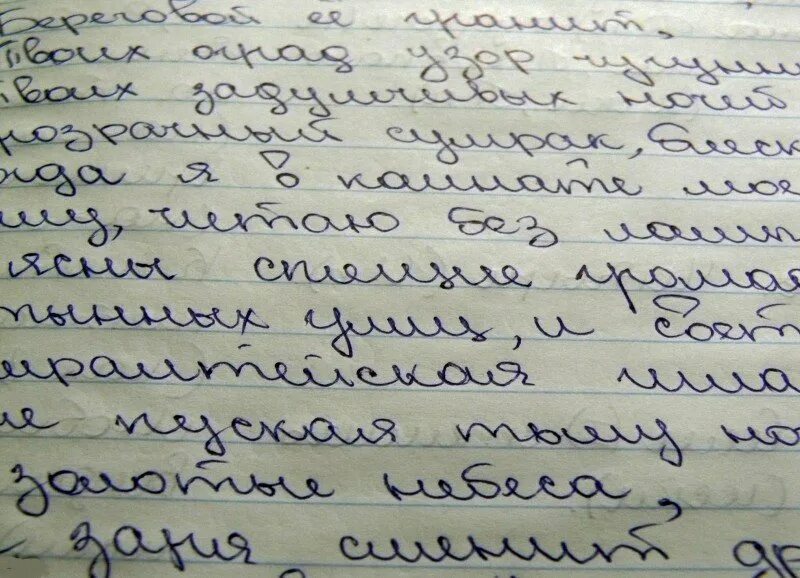 Береговой её гранит,
Твоих оград узор чугунн
Твоих задумчивых ночей
розрачный сумрак, блеск
гда я в комнате мое
ишу, читаю без ламп
ясны спящие громад
тынных улиц, и свет
миралтейская игла
не пуская тьму но
золотые небеса,
заря сменит др